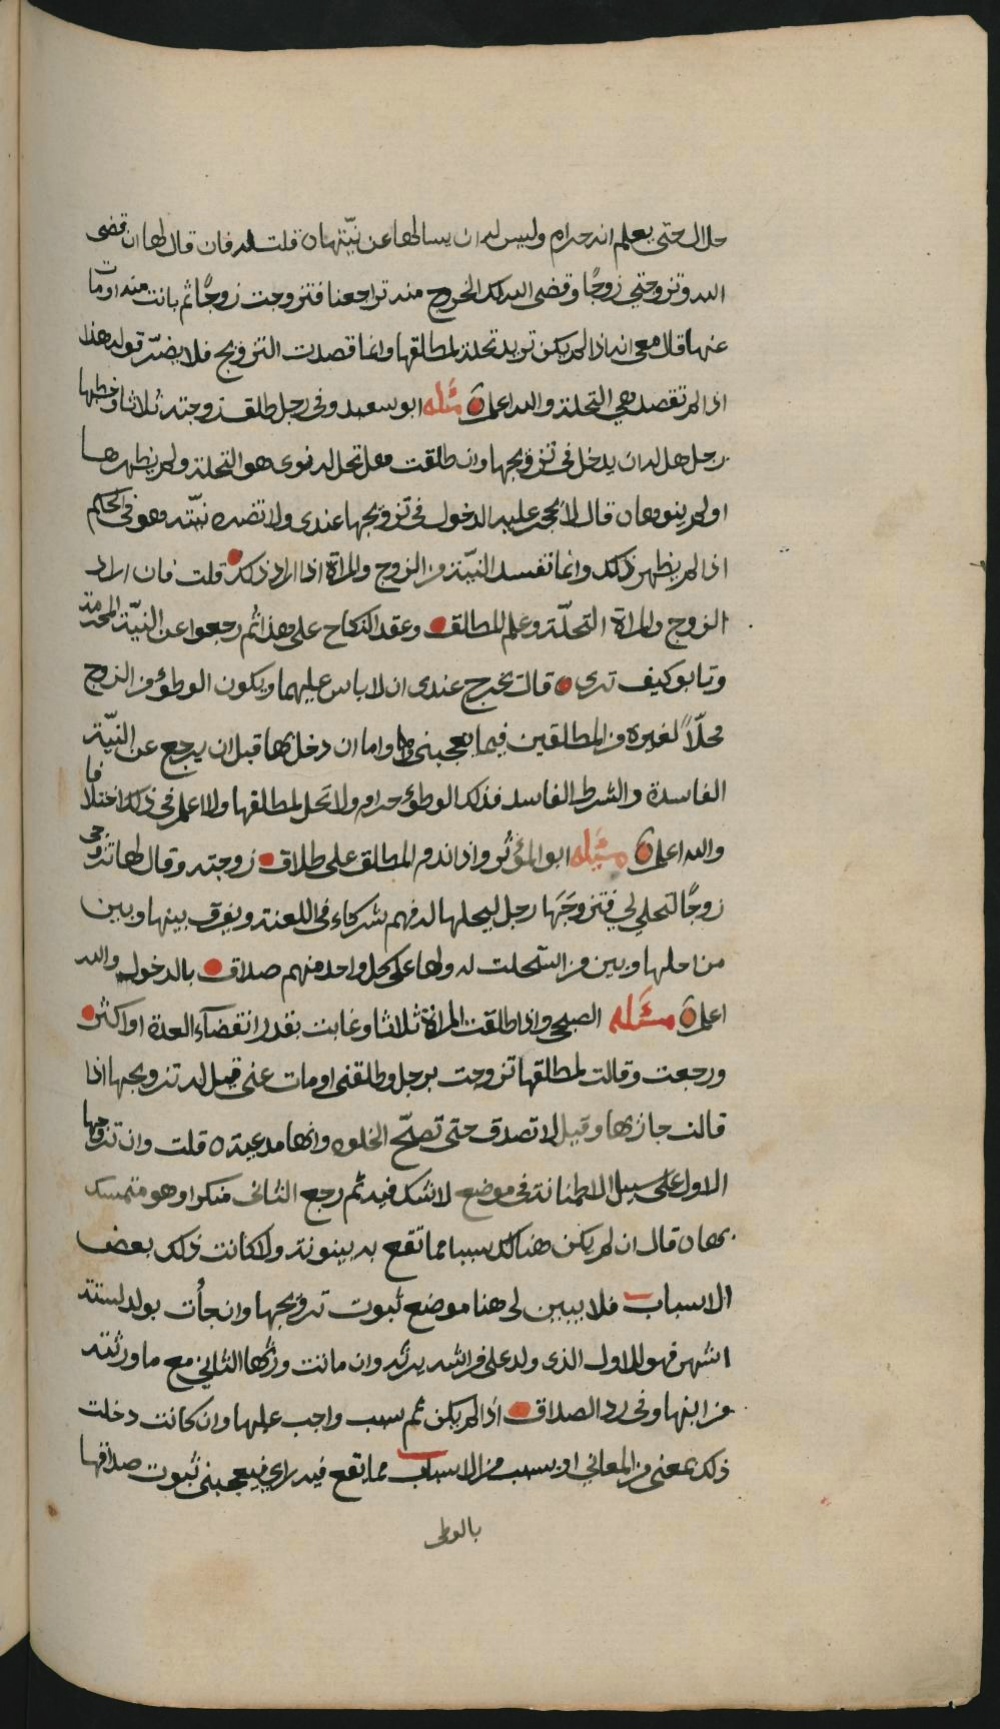 حلال حتى يعلم انه حرام وليس له ان يسالها عن نيتها ه قلت له فان قال لها ان قضى
الله وتزوجتي زوجًا وقضى الله لك الخروج منه تراجعنا فتزوجت زوجًا ثم بانت منه او مات
عنها قال معي انه اذا لم يكن تريد تحلة لمطلقها وانما قصدت التزويج فلا يضرّ قوله هذا
اذا لم تقصد هي التحلة والله اعلم ه مسئله ابو سعيد وفي رجل طلق زوجته ثلاثا وخطبها
رجل هل له ان يدخل في تزويجها وان طلقت هل تحل له نوى هو التحلة ولم يظهرها
او لم ينوه ه قال لا يحجر عليه الدخول في تزويجها عندى ولا تضره نيّته وهو في الحكم
اذا لم يظهر ذلك وانما تفسد النيّة من الزوج والمراة اذا اراد ذلك قلت فان اراد
الزوج والمراة التحلّة وعلم المطلق وعقد النكاح على هذا ثم رجعوا عن النيّة المحرمة
وتابو كيف ترى قال يخرج عندى ان لا باس عليهما ويكون الوطؤ من الزوج
محلّاً لغيره من المطلقين فيما يعجبنى واما ان دخل بها قبل ان يرجع عن النيّة
الفاسدة والشرط الفاسد فذلك الوطؤ حرام ولا تحل لمطلقها ولا اعلم في ذلك اختلافا
والله اعلم ه مسئله ابو المؤثر واذا ندم المطلق على طلاق زوجته وقال لها تزوجي
زوجًا لتحلي لي فتزوجَهَا رجل ليحلها له فهم شركاء في اللعنة ويفرق بينها وبين
من احلها وبين من استحلت له ولها على كل واحد منهم صداق بالدخول والله
اعلم ه مسئله الصبحي واذا طلقت المراة ثلاثا وغابت بقدر انقضآء العدة او اكثر
ورجعت وقالت لمطلقها تزوجت برجل وطلقني او مات عني قيل له تزويجها اذا
قالت جاز بها وقيل لا تصدق حتى تصحّ الخلوه وانها مدعية ه قلت وان تزوجها
الاول على سبيل الاطمئنانة في موضع لا شك فيه ثم رجع الثانى منكرا وهو متمسك
بها ه قال ان لم يكن هنالك سببا مما تقع به بينونة ولا كانت ذلك بعض
الاسباب فلا يبين لى هنا موضع ثبوت تزويجها وان جأت بولد لستة
اشهر فهو للاول الذى ولد على فراشه يرثه وان ماتت ورثها الثاني مع ما ورثته
من ابنها وفى رد الصداق اذا لم يكن ثم سبب واجب عليها وان كانت دخلت
ذلك بمعنى من المعاني او بسبب من الاسباب مما يقع فيه راي فيعجبنى ثبوت صداقها
بالوطى